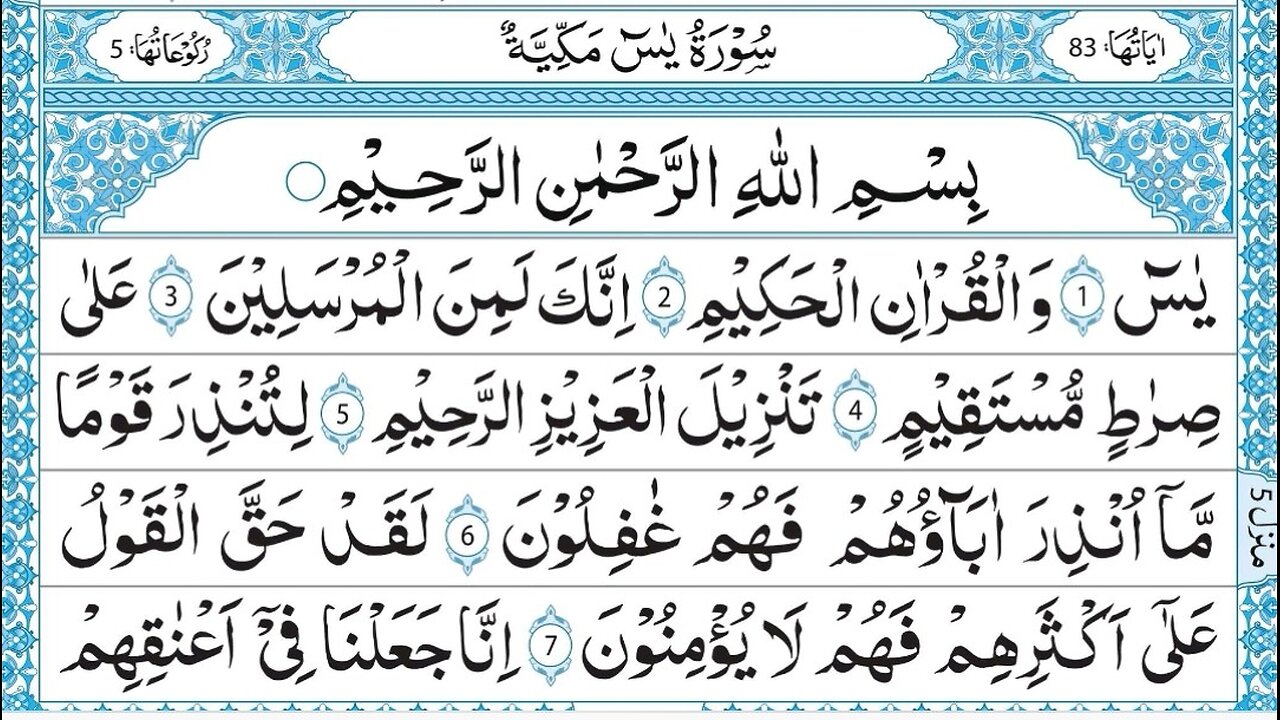 اٰيَاتُهَا: 83
سُوْرَةُ يٰسٓ مَكِّيَّةٌ
رُكُوْعَاتُهَا: 5
بِسْمِ اللّٰهِ الرَّحْمٰنِ الرَّحِيْمِ
يٰسٓ 1 وَالْقُرْاٰنِ الْحَكِيْمِ 2 اِنَّكَ لَمِنَ الْمُرْسَلِيْنَ 3 عَلٰى
صِرٰطٍ مُّسْتَقِيْمٍ 4 تَنْزِيْلَ الْعَزِيْزِ الرَّحِيْمِ 5 لِتُنْذِرَ قَوْمًا
مَّآ اُنْذِرَ اٰبَآؤُهُمْ فَهُمْ غٰفِلُوْنَ 6 لَقَدْ حَقَّ الْقَوْلُ
عَلٰٓى اَكْثَرِهِمْ فَهُمْ لَا يُؤْمِنُوْنَ 7 اِنَّا جَعَلْنَا فِيْٓ اَعْنٰقِهِمْ
منزل 5